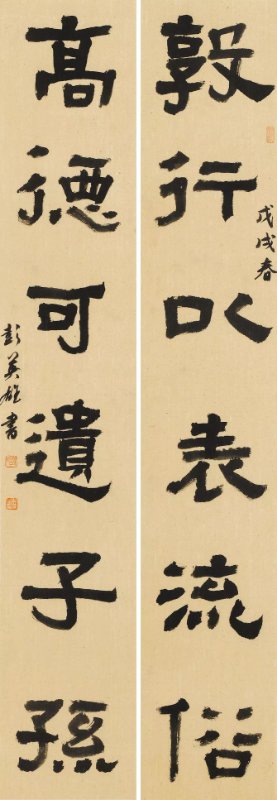 敦行以表流俗
戊戌春
高德可遺子孫
彭英雄書